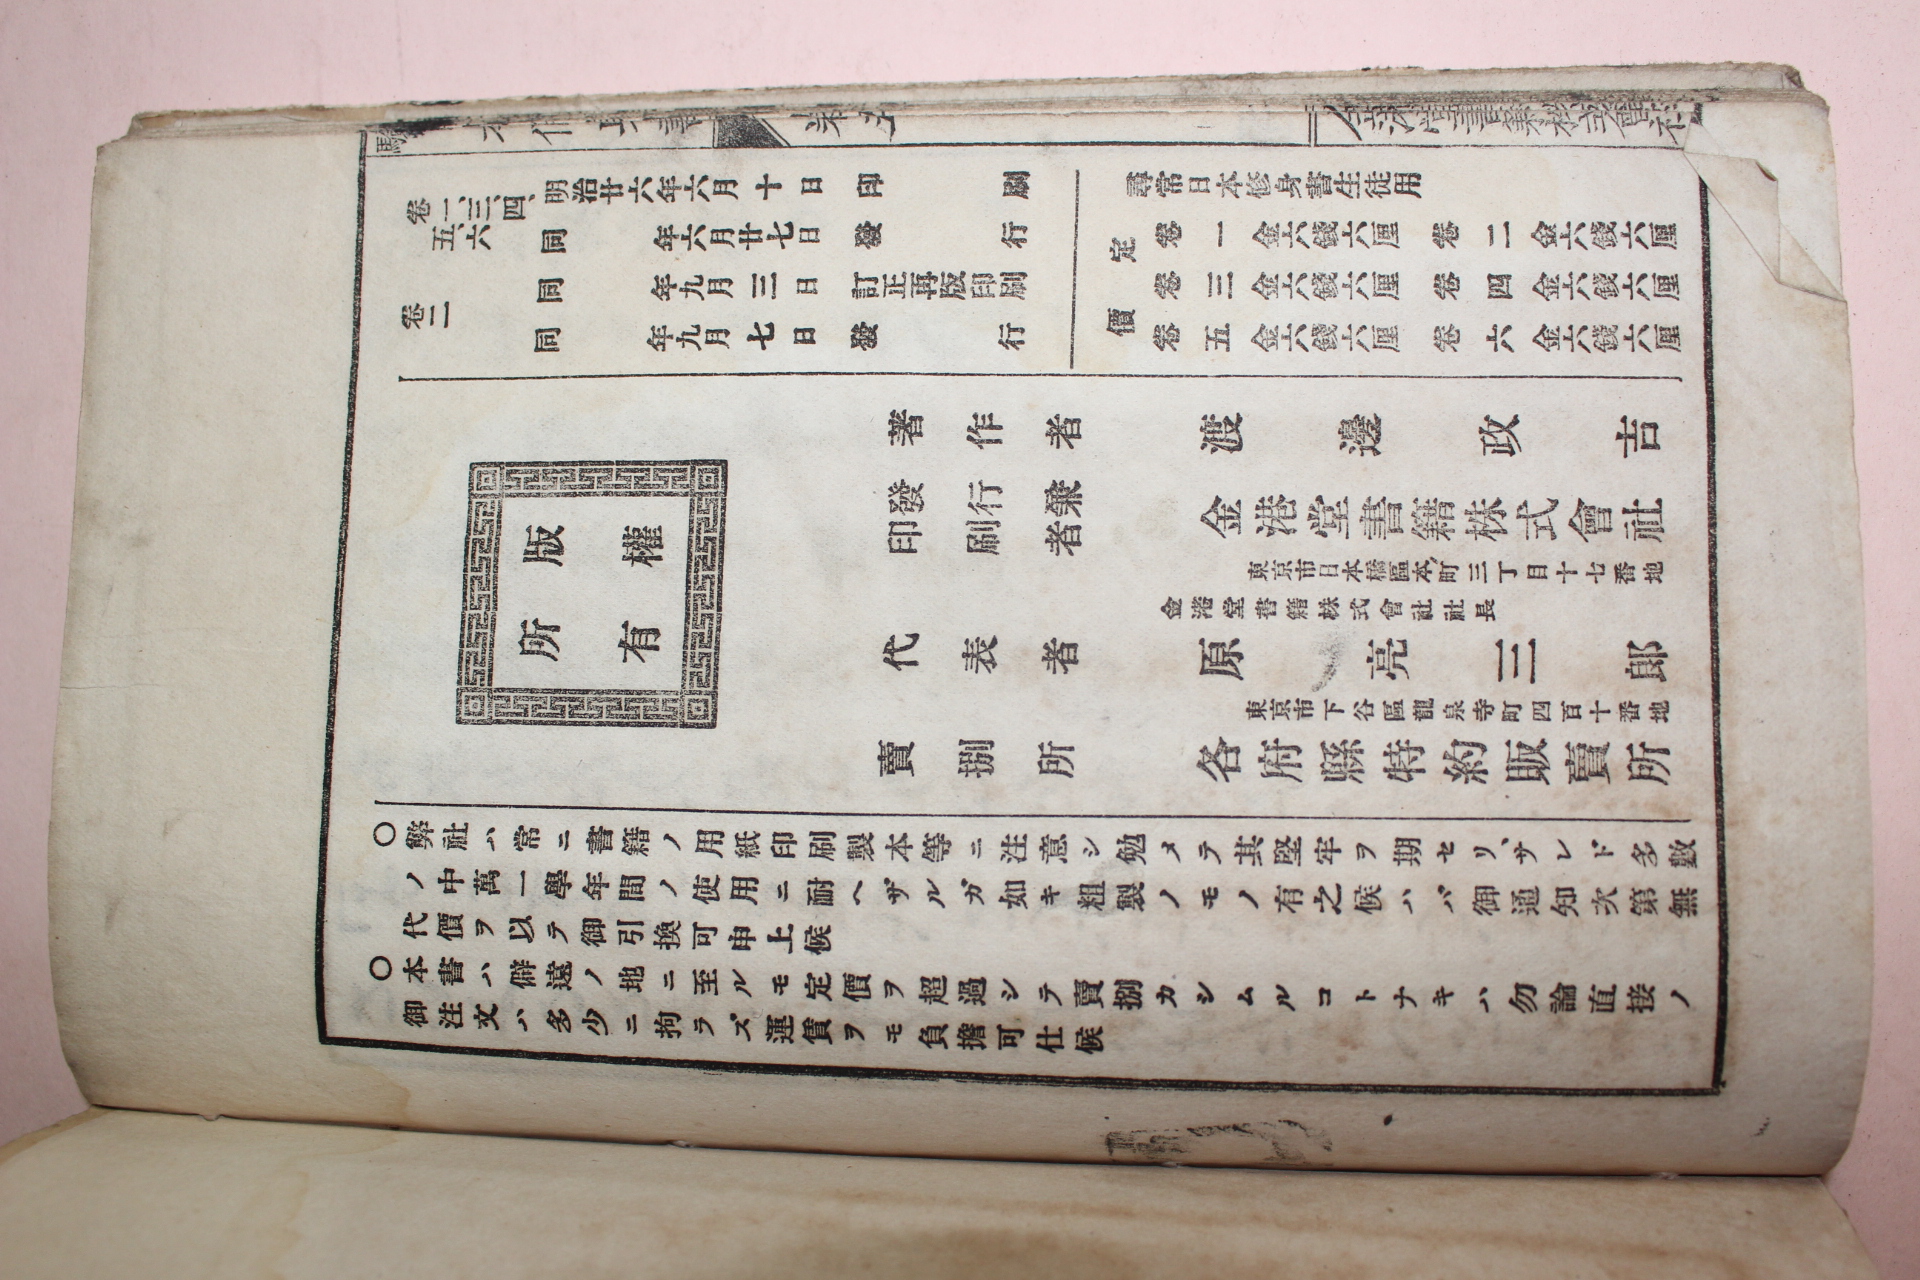 金港堂書籍株式會社
卷一、三、四、五、六
明治廿六年六月十日印刷
同年六月廿七日發行
卷二
同年九月三日訂正再版印刷
同年九月七日發行
尋常日本修身書生徒用
定價
卷一金六錢六厘 卷二金六錢六厘
卷三金六錢六厘 卷四金六錢六厘
卷五金六錢六厘 卷六金六錢六厘
版權
所有
著作者 渡邊政吉
發行兼
印刷者
金港堂書籍株式會社
東京市日本橋區本町三丁目十七番地
金港堂書籍株式會社社長
代表者 原亮三郎
東京市下谷區龍泉寺町四百十番地
賣捌所 各府縣特約販賣所
○弊社ハ常ニ書籍ノ用紙印刷製本等ニ注意シ勉メテ其堅牢ヲ期セリ、サレド多數
ノ中萬一學年間ノ使用ニ耐ヘザルガ如キ粗製ノモノ有之候ハバ御通知次第無
代價ヲ以テ御引換可申上候
○本書ハ僻遠ノ地ニ至ルモ定價ヲ超過シテ賣捌カシムルコトナキハ勿論直接ノ
御注文ハ多少ニ拘ラズ運賃ヲモ負擔可仕候